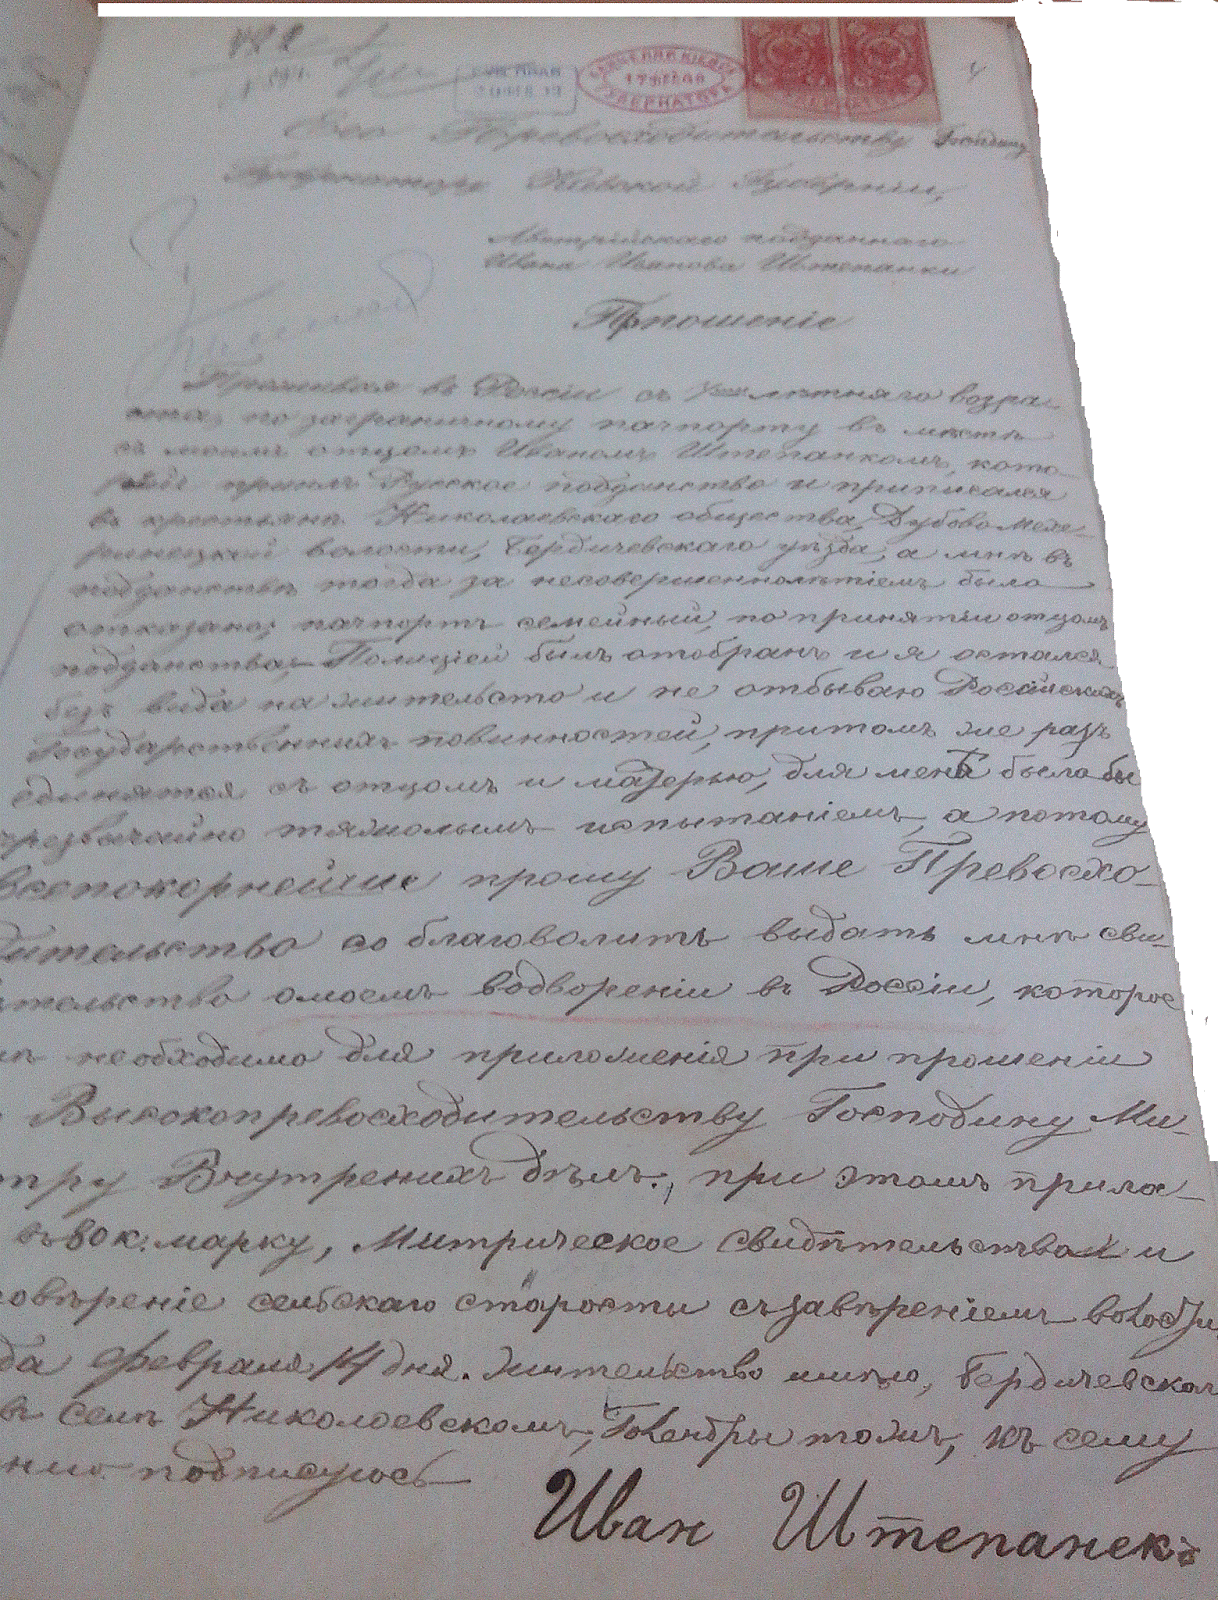 Его Превосходительству Господину
Губернатору Кіевской Губерніи,
Австрійскаго подданнаго
Ивана Иванова Штепанки
Прошеніе
Проживая въ Россіи съ лѣтняго возра-
ста, по заграничному пачпорту въ мѣстѣ
съ моимъ отцомъ Иваномъ Штепанкомъ, кото-
рый принялъ Русское подданство и приписался
въ крестьяне Николаевскаго общества, Дубово Меже-
ринецкой волости, Бердичевскаго уѣзда, а мнѣ въ
подданствѣ тогда за несовершеннолѣтіемъ было
отказано; пачпортъ семейный, по принятіи отцомъ
подданства, Полиціей былъ отобранъ и я остался
безъ вида на жительсто и не отбываю Російскихъ
Государственныхъ повинностей, притомъ же разъ
единятся съ отцомъ и матерью, для меня было бы
чрезвычайно тяжолымъ испытаніемъ, а потому
всепокорнейше прошу Ваше Превосхо-
дительство со благоволить выдать мнѣ сви-
тельство омоемъ водвореніи въ Россіи, которое
необходимо для приложенія при прошеніи
Высокопревосходительству Господину Ми-
тру Внутренихъ дѣлъ., при этомъ прила-
въ 80 к. марку, Митрическое свидѣтельство и
овѣреніе селбскаго старосты съ завѣреніемъ волости
да февраля 14 дня. Жительство имѣю, Бердичевскаго
въ селѣ Николоевскомъ, тожъ, къ сему
нию подписуюсь
Иван Штепанекъ